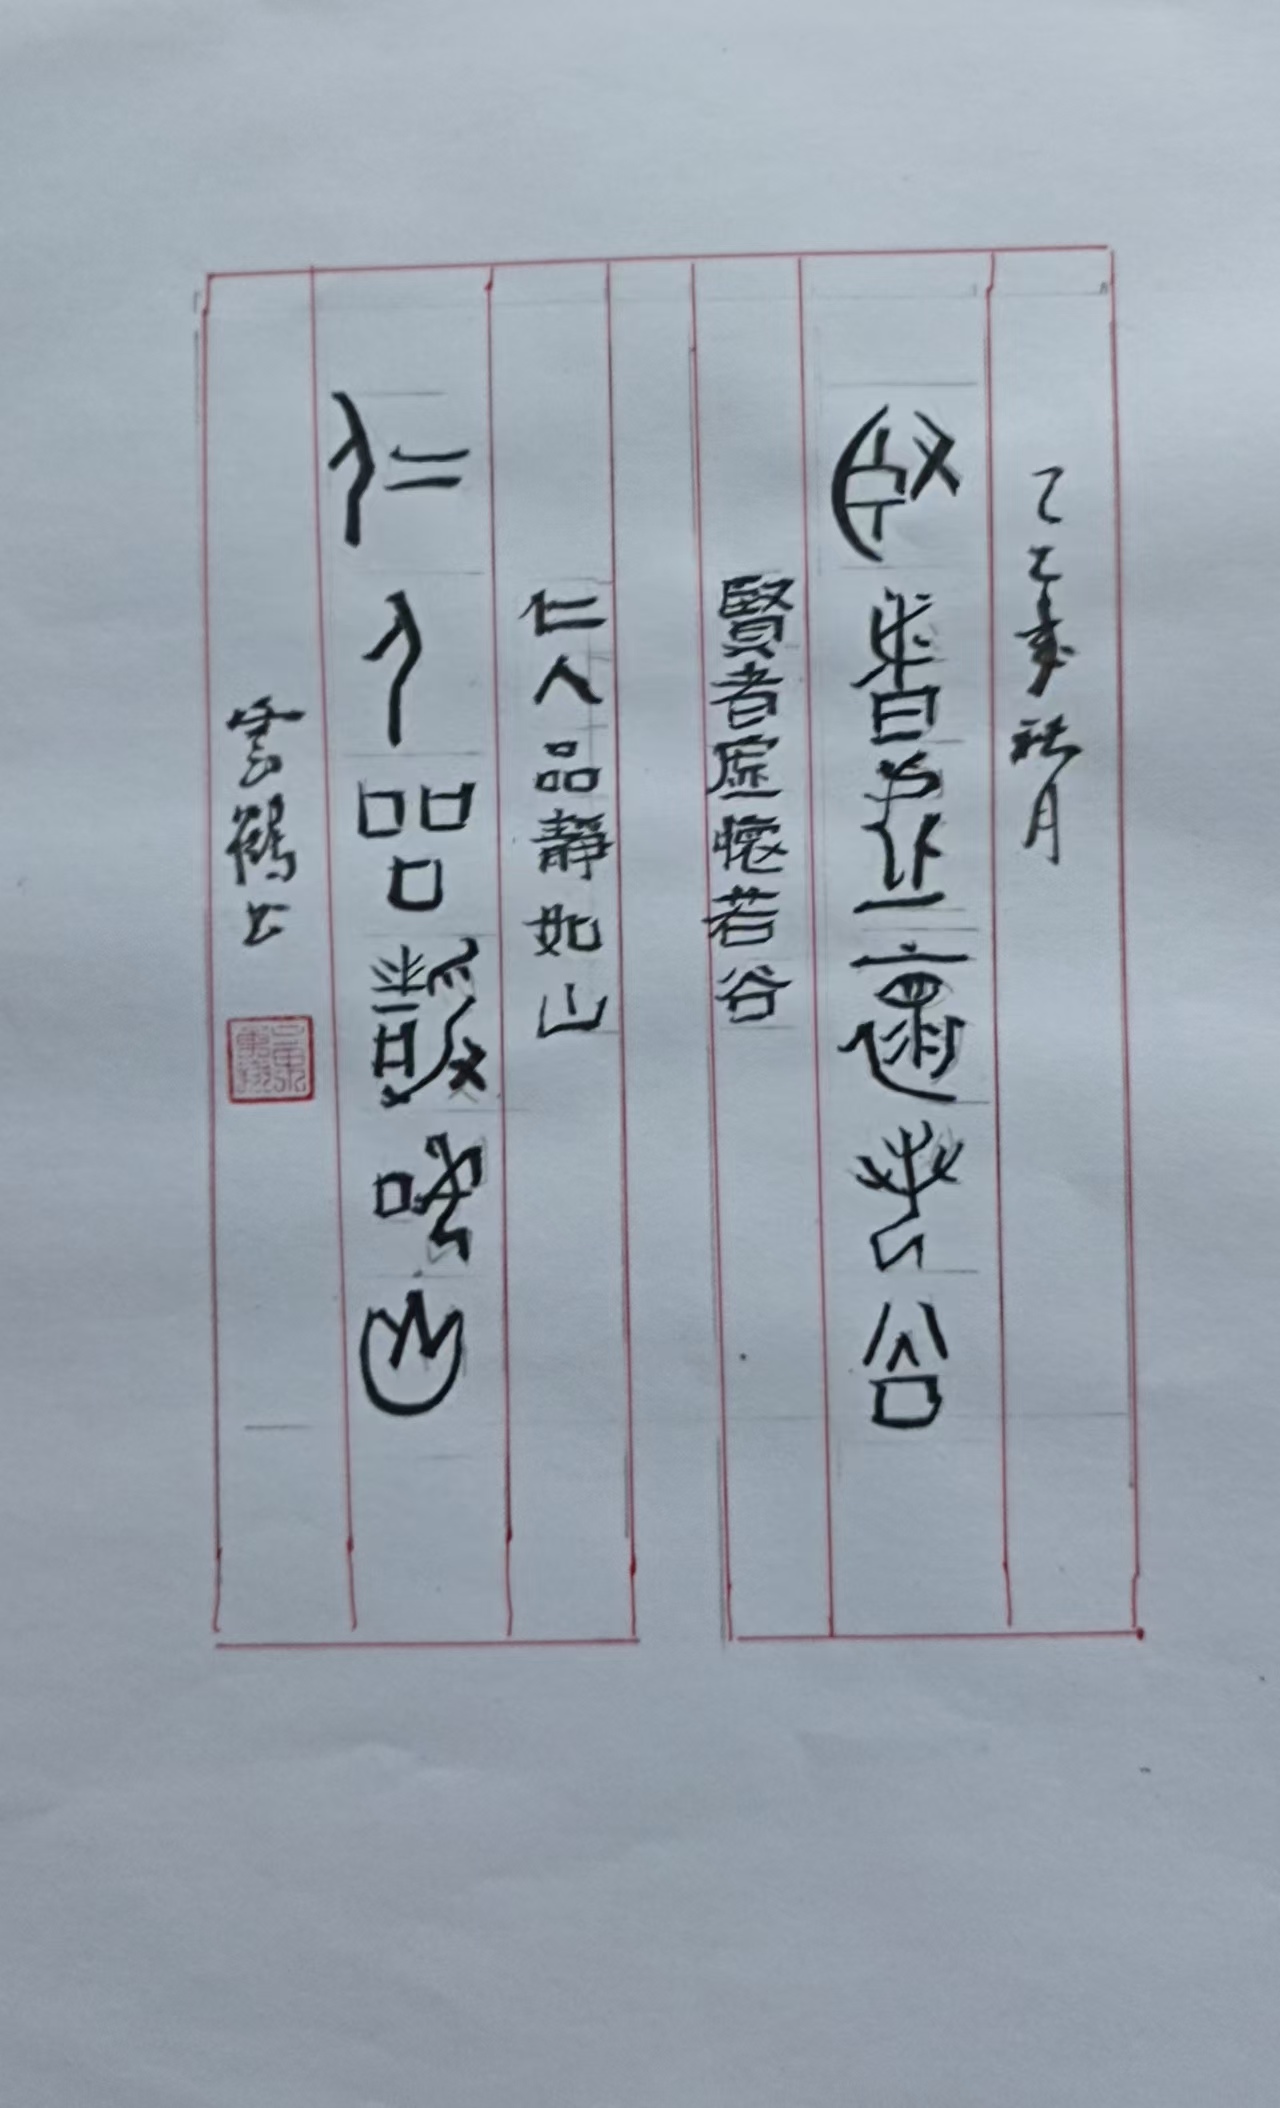 乙巳春秋月
賢者虛懷若谷
賢者虛懷若谷
仁人品靜如山
仁人品靜如山
雲鶴書